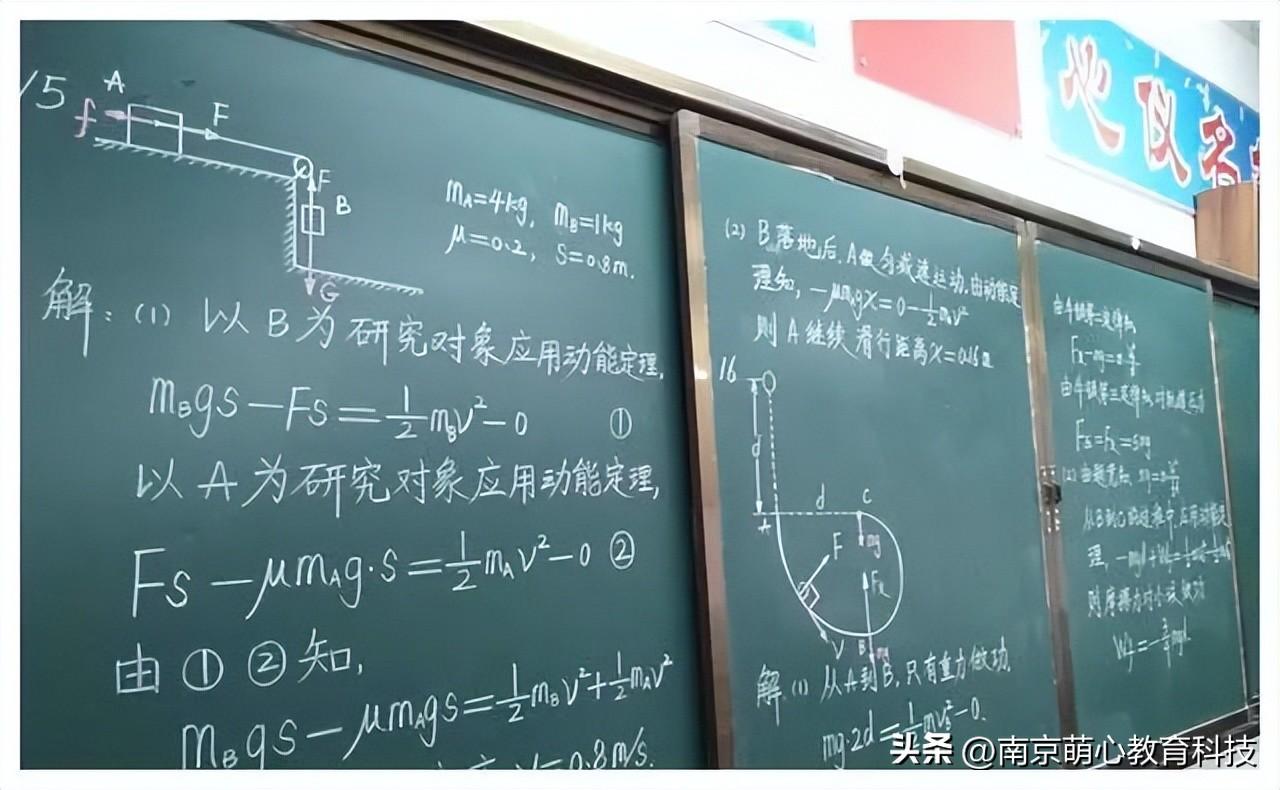 15
A
f
F
F
B
G
mA=4kg, mB=1kg
μ=0.2, s=0.8m.
解:(1) 以B为研究对象应用动能定理,
mBgs-Fs=½mBv²-0 ①
以A为研究对象应用动能定理,
Fs-μmAg·s=½mAv²-0 ②
由①②知,
mBgs-μmAgs=½mBv²+½mAv²
v=0.8m/s.
(2) B落地后,A做匀减速运动,由动能定
理知, -μmAgx=0-½mAv²
则A继续滑行距离x=0.16m
16
d
A
d
C
mg
F
FN
V
B
mg
解(1) 从A到B,只有重力做功.
mg·2d=½mv²-0.
由牛顿第二定律知
由牛顿第三定律知,对轨道压力
=5mg
(2)由题意知,
从B到C的过程中,应用动能定
理,
则摩擦力对小球做功
Wf=-¾mgd.
地仪容
头条 @南京萌心教育科技